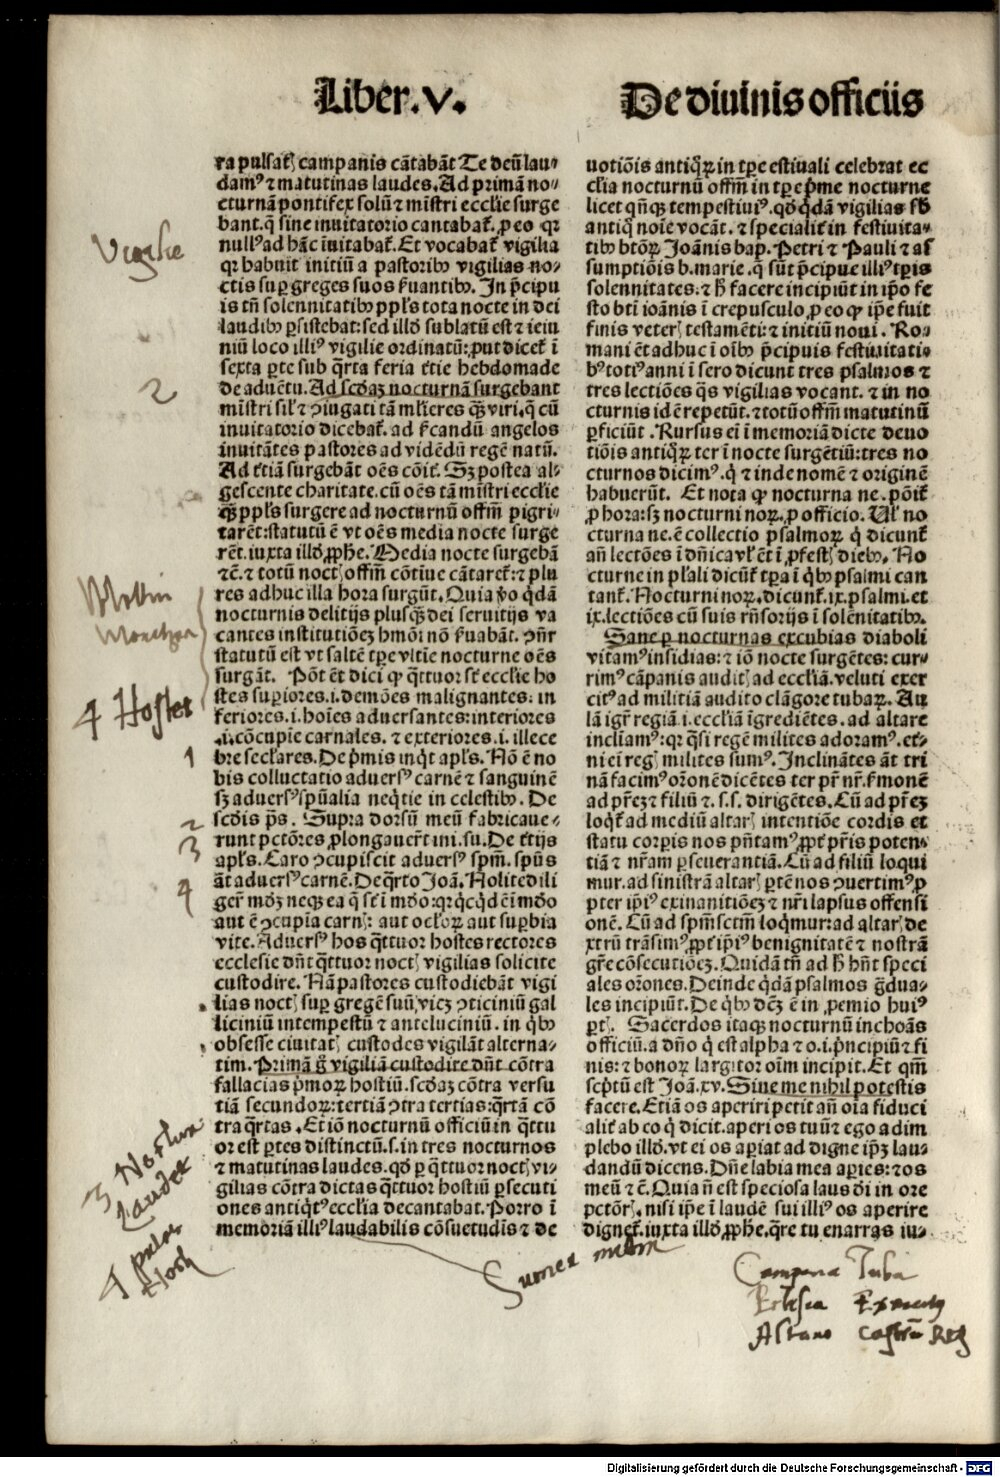 Liber.v. De diuinis officiis
ra pulsatꝭ campanis cātabāt Te deū lau⸗
damꝰ ⁊ matutinas laudes. Ad primā no⸗
cturnā pontifex solū ⁊ mīstri ecclie surge
bant. q̄ sine inuitatorio cantabat̄. ꝓ eo qr
nullꝰ ad hāc īuitabat̄. Et vocabat̄ vigilia
qr habuit initiū a pastoribꝰ vigilias no⸗
ctis suꝑ greges suos ẜuantibꝰ. In p̄cipu
is tn̄ solennitatibꝰ ppl̄s tota nocte in dei
laudibꝰ ꝑsistebat: sed illd̄ sublatū est ⁊ ieiu
niū loco illiꝰ vigilie ordinatū: ꝓut dicet̄ ī
sexta ꝑte sub q̄rta feria t̄tie hebdomade
de aduētu. Ad scd̄aꝫ nocturnā surgebant
mīstri sil̄r ⁊ ↄiugati tā ml̄ieres qꝫ̄ viri. q̄ cū
inuitatorio dicebat̄. ad ẜcandū angelos
inuitātes pastores ad vidēdū regē natū.
Ad t̄tiā surgebāt oēs cōit̄. Sꝫ postea al⸗
gescente charitate. cū oēs tā mīstri ecclie
qꝫ̄ ppl̄s surgere ad nocturnū offm̄ pigri⸗
tarēt: statutū ē vt oēs media nocte surge
rēt. iuxta illd̄ ꝓph̄e. Media nocte surgebā
⁊c̄. ⁊ totū noctꝭ offm̄ cōtīue cātaret̄: ⁊ plu
res adhuc illa hora surgūt. Quia ꝟo q̄dā
nocturnis delitijs plusqꝫ̄ dei seruitijs va
cantes institutiōeꝫ hm̄oi nō ẜuabāt. ↄn̄r
statutū est vt saltē tꝑe vltīe nocturne oēs
surgāt. Pōt ēt dici ꝙ q̄ttuor sꝉ ecclie ho
stes suꝑiores .i. demōes malignantes: in
feriores .i. hoīes aduersantes: interiores
.i. cōcupie carnales. ⁊ exteriores .i. illece
bre secl̄ares. De p̄mis inq̇t apl̄s. Nō ē no
bis colluctatio aduersꝰ carnē ⁊ sanguinē
sꝫ aduersꝰ spūalia neq̇tie in celestibꝰ. De
scd̄is p̄s. Supra dorsū meū fabricaue⸗
runt pctōres ꝓlongauer̄t ini. su. De t̄tijs
apl̄s. Caro ↄcupiscit aduersꝰ spm̄. spūs
āt aduersꝰ carnē. De q̄rto Joā. Nolite dili
ger̄ mdꝫ̄ neqꝫ ea q̄ st̄ ī mdo: qr qcqd̄ ē ī mdo
aut ē ↄcupīa carnꝭ: aut ocl̄oꝝ aut suꝑbia
vite. Aduersꝰ hos q̄ttuor hostes rectores
ecclesie dn̄t q̄ttuor noctꝭ vigilias solicite
custodire. Nā pastores custodiebāt vigi
lias noctꝭ suꝑ gregē suū, vicꝫ ↄticiniū gal
liciniū intempestū ⁊ antelucinīū. in q̇bꝰ
obsesse ciuitatꝭ custodes vigilāt alterna⸗
tim. Primā g̊ vigiliā custodire dn̄t cōtra
fallacias p̄moꝝ hostiū. scd̄aꝫ cōtra versu
tiā secundoꝝ: tertiā ↄtra tertias: q̄rtā cō
tra q̄rtas. Et iō nocturnū officiū in q̄ttu
or est ꝑtes distinctū. s. in tres nocturnos
⁊ matutinas laudes. qd̄ ꝑ q̄ttuor noctꝭ vi⸗
gilias cōtra dictas q̄ttuor hostiū ꝑsecuti
ones antiq̇tꝰ ecclia decantabat. Porro ī
memoriā illiꝰ laudabilis cōsuetudīs ⁊ de
uotiōis antiq̄ꝝ in tꝑe estiuali celebrat ec
clia nocturnū offm̄ in tꝑe p̄me nocturne
licet qn̄qꝫ tempestiuiꝰ. qd̄ q̄dā vigilias sb̄
antiq̄ noīe vocāt. ⁊ specialit̄ in festiuita⸗
tibꝰ btōꝝ Joānis bap. Petri ⁊ Pauli ⁊ as
sumptiōis b. marie. q̄ sūt p̄cipue illiꝰ tꝑis
solennitates: ⁊ h̄ facere incipiūt in ip̄o fe
sto bt̄i ioānis ī crepusculo, ꝓ eo ꝙ ip̄e fuit
finis veterꝭ testamēti: ⁊ initiū noui. Ro⸗
mani ēt adhuc ī oībꝰ p̄cipuis festiuitati⸗
bꝰ totiꝰ anni ī sero dicunt tres psalmos ⁊
tres lectiōes q̄s vigilias vocant. ⁊ in no
cturnis idē repetūt. ⁊ totū offm̄ matutinū
ꝑficiūt. Rursus ei ī memoriā dicte deuo
tiōis antiq̄ꝝ ter ī nocte surgētiū: tres no
cturnos dicimꝰ. q̇ ⁊ inde nomē ⁊ originē
habuerūt. Et nota ꝙ nocturna ne. pōit̄
ꝓ hora: sꝫ nocturni noꝝ. ꝓ officio. Ul̄ no
cturna ne. ē collectio psalmoꝝ q̇ dicunt̄
an̄ lectōes ī dn̄ica vl̄ ēt ī ꝓfestꝭ diebꝰ. No
cturne in pl̄ali dicūt̄ tꝑa ī q̇bꝰ psalmi can
tant̄. Nocturni noꝝ. dicunt̄ .ix. psalmi. et
ix. lectiōes cū suis rn̄sorijs ī solēnitatibꝰ.
Sane ꝑ nocturnas excubias diaboli
vitamꝰ insidias: ⁊ iō nocte surgētes: cur⸗
rimꝰ cāpanis auditꝭ ad eccliā. veluti exer
citꝰ ad militiā audito clāgore tubaꝝ. Au
lā igr̄ regiā .i. eccliā īgrediētes. ad altare
incliamꝰ: qr q̄si regē milites adoramꝰ. et⸗
ni ei regꝭ milites sumꝰ. Inclinātes āt tri
nā facimꝰ orōnē dicētes ter pr̄ nr̄. ẜmonē
ad pr̄eꝫ ⁊ filiū ⁊ .s.s. dirigētes. Cū ad pr̄eꝫ
loqt̄ ad mediū altarꝭ intentiōe cordis et
statu corꝑis nos pn̄tamꝰ, ꝓpt̄ pr̄is poten⸗
tiā ⁊ nr̄am ꝑseuerantiā. Cū ad filiū loqui
mur. ad sinistrā altarꝭ ꝑtē nos ↄuertimꝰ ꝓ
pter ip̄iꝰ exinanitiōeꝫ ⁊ nr̄i lapsus offensi
onē. Cū ad spm̄ sctm̄ loq̇mur: ad altarꝭ de
xtrū trāsimꝰ, ꝓpt̄ ip̄iꝰ benignitatē ⁊ nostrā
gr̄e cōsecutiōeꝫ. Quidā tn̄ ad h̄ hn̄t speci
ales orōnes. Deinde q̄dā psalmos g̊dua⸗
les incipiūt. De q̇bꝰ dēꝫ ē in ꝓemio huiꝰ
ꝑtꝭ. Sacerdos itaqꝫ nocturnū inchoās
officiū. a dn̄o q̇ est alpha ⁊ o. i. p̄ncipiū ⁊ fi
nis: ⁊ bonoꝝ largitor oīm incipit. Et qm̄
scp̄tū est Joā. xv. Siue me nihil potestis
facere. Etiā os aperiri petit an̄ oīa fiduci
alit̄ ab eo q̇ dicit. aperi os tuū ⁊ ego adim
plebo illd̄. vt ei os aꝑiat ad digne ip̄ꝫ lau⸗
dandū dicens. Dn̄e labia mea aꝑies: ⁊ os
meū ⁊ c̄. Quia n̄ est speciosa laus d̄i in ore
pctōrꝭ. nisi ip̄e ī laudē sui illiꝰ os aperire
dignet̄. iuxta illd̄ ꝓph̄e. q̄re tu enarras iu⸗
Vigilie
2
4 Hostes
1
2
3
4
3 Noctur
Laudes
4
Campana Tuba
Ecclesia Exercitꝰ